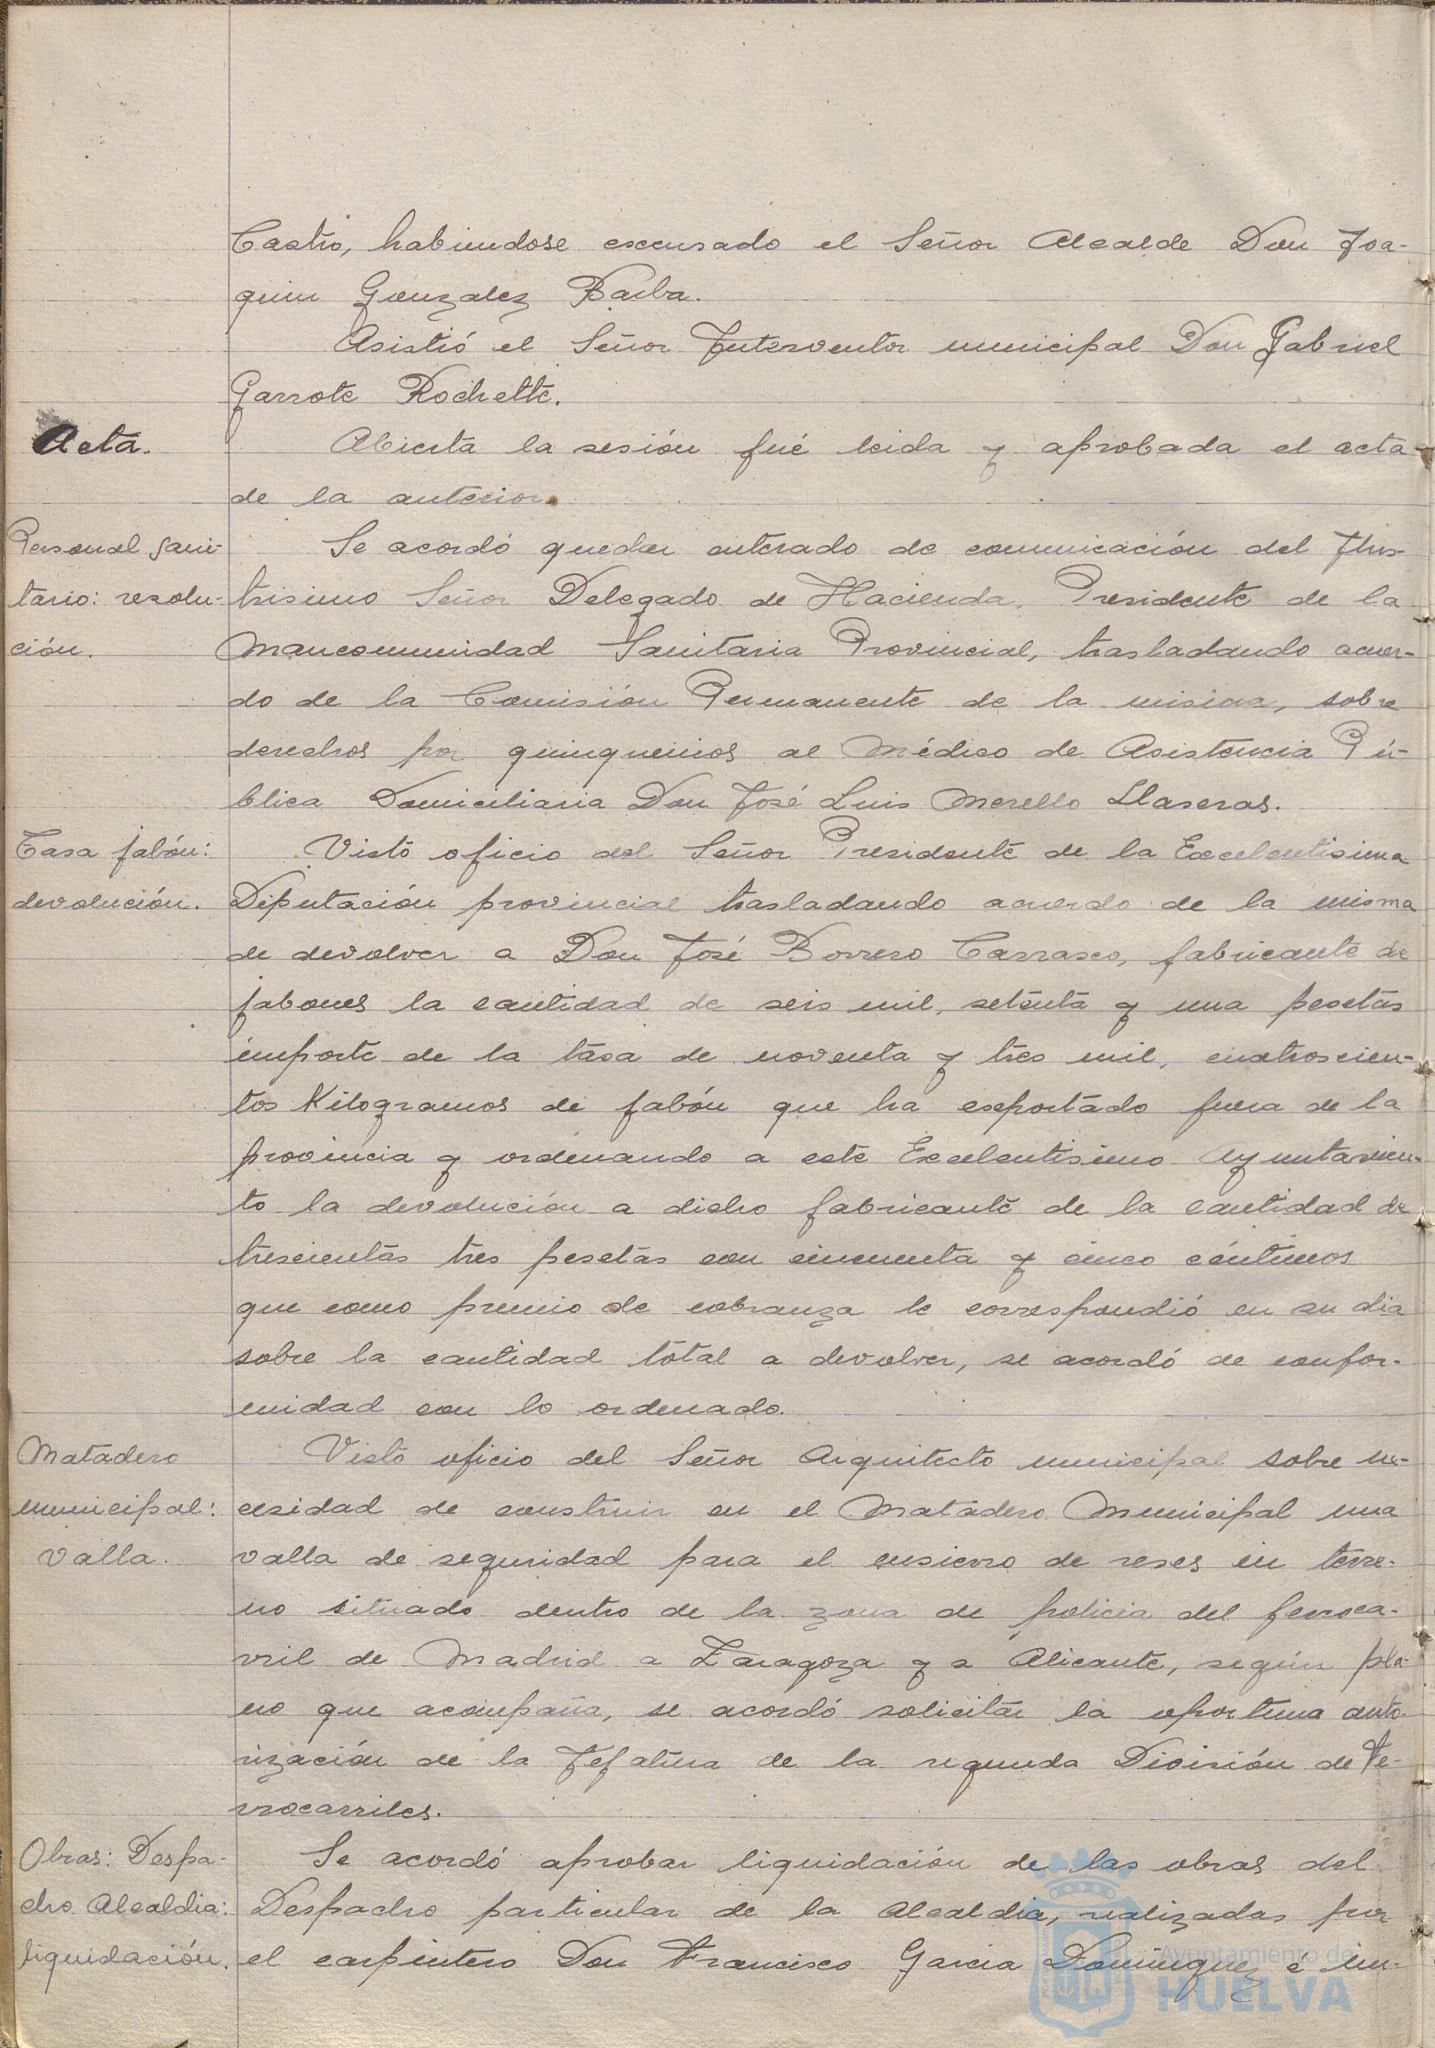 Castro, habiendose escusado el Señor Alcalde Don Joa-
quin Gonzalez Barba.
Asistió el Señor Interventor municipal Don Gabriel
Garrote Rochette.
Acta.
Abierta la sesión fué leida y aprobada el acta
de la anterior.
Personal sani-
tario: resolu-
ción.
Se acordó quedar enterado de comunicación del Ilus-
trisimo Señor Delegado de Hacienda, Presidente de la
Mancomunidad Sanitaria Provincial, trasladando acuer-
do de la Comisión Permanente de la misma, sobre
derechos por quinquenios al Médico de Asistencia Pú-
blica Domiciliaria Don José Luis Merello Llaseras.
Tasa jabón:
devolución.
Visto oficio del Señor Presidente de la Excelentisima
Diputación provincial trasladando acuerdo de la misma
de devolver a Don José Borrero Carrasco, fabricante de
jabones la cantidad de seis mil, setenta y una pesetas
importe de la tasa de noventa y tres mil, cuatroscien-
tos Kilogramos de jabón que ha esportado fuera de la
provincia y ordenando a este Excelentisimo Ayuntamien-
to la devolución a dicho fabricante de la cantidad de
trescientas tres pesetas con cincuenta y cinco céntimos
que como premio de cobranza le correspondió en su dia
sobre la cantidad total a devolver, se acordó de confor-
midad con lo ordenado.
Matadero
municipal:
valla.
Visto oficio del Señor Arquitecto municipal sobre ne-
cesidad de construir en el Matadero Municipal una
valla de seguridad para el ensierro de reses en terre-
no situado dentro de la zona de policia del ferroca-
rril de Madrid a Zaragoza y a Alicante, según pla-
no que acompaña, se acordó solicitar la oportuna auto-
rización de la Jefatura de la segunda División de Fe-
rrocarriles.
Obras: Despa-
cho Alcaldia:
liquidación.
Se acordó aprobar liquidación de las obras del
Despacho particular de la Alcaldia, realizadas por
el carpintero Don Francisco Garcia Dominguez é im-
Ayuntamiento de
HUELVA